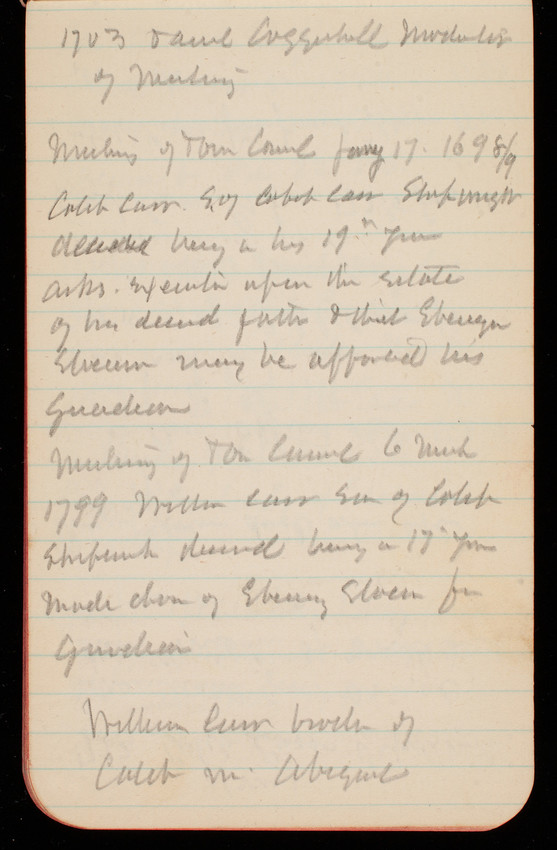 1703 Daniel Coggeshall Moderator
of Meeting
Meeting of Town Council Jany 17. 1698/9
Caleb Carr. S. of Caleb Carr Shipwright
deceased being in his 19th year
asks. Execution upon the estate
of his deceasd father & that Ebenezer
Slocum may be appointed his
Guardian
Meeting of Town Council 6 March
1799 William Carr Son of Caleb
Shipwright deceasd being in 17th year
Made choice of Ebenezer Slocum for
Guardian
William Carr brother of
Caleb m. Abigail